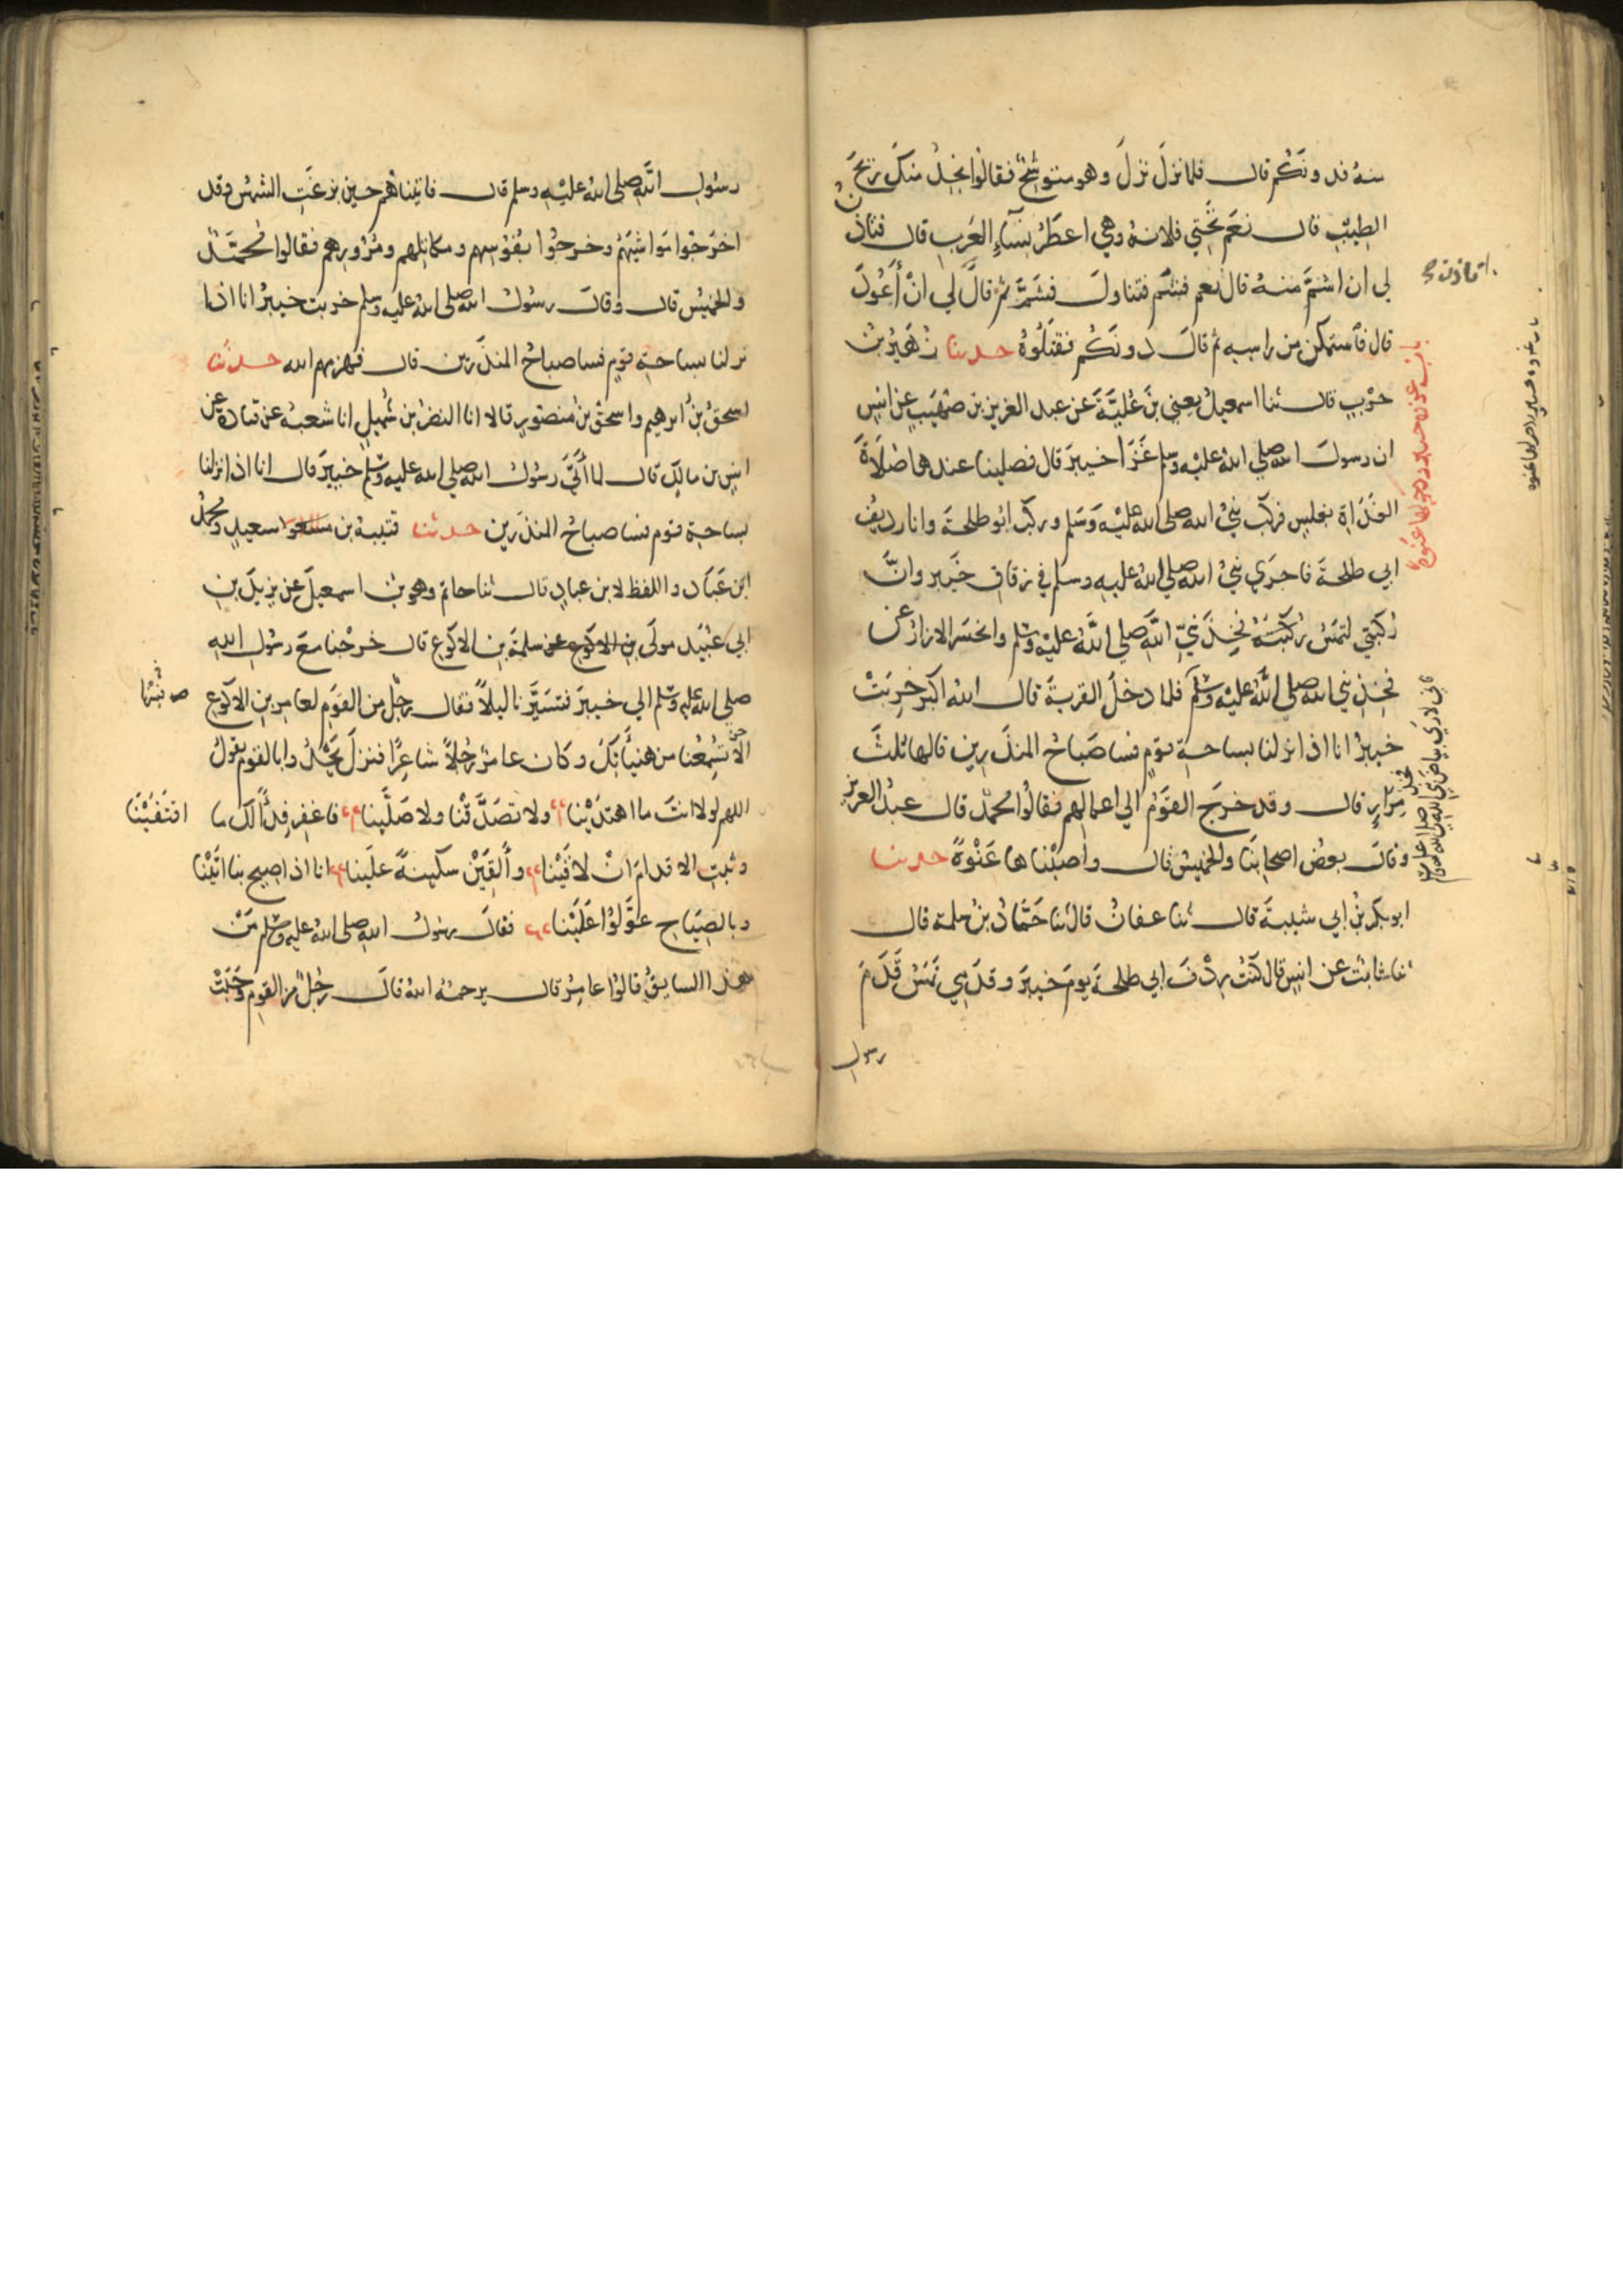 منه فدونكم قال فلما نزل نزل وهو متوشح فقالوا نجد منك ريح
الطيب قال نعم تحتي فلانة وهي اعطر نساء العرب قال فتاذن
لي ان اشم منه قال نعم فشم فتناول فشم ثم قال لي ان اعود
قال فاستمكن من راسه ثم قال دونكم فقتلوه حدثنا زهير بن
حرب قال ثنا اسمعيل يعني بن علية عن عبد العزيز بن صهيب عن انس
ان رسول الله صلي الله عليه وسلم غزا خيبر قال فصلينا عندها صلاة
الغداة بغلس فركب نبي الله صلى الله عليه وسلم وركب ابو طلحة وانا رديف
ابي طلحة فاجري نبي الله صلي الله عليه وسلم في زقاق خيبر وان
ركبتي لتمس ركبته فخذ نبي الله صلي الله عليه وسلم وانحسر الازار عن
فخذ نبي الله صلى الله عليه وسلم فلما دخل القرية قال الله اكبر خربت
خيبر انا اذا نزلنا بساحة قوم فسا صباح المنذرين قالها ثلث
مرار قال وقد خرج القوم الي اعمالهم فقالوا محمد قال عبد العزيز
وقال بعض اصحابنا والخميس قال واصبناها عنوة حدثنا
ابو بكر بن ابي شيبة قال ثنا عفان قال ثنا حماد بن سلمة قال
ثنا ثابت عن انس قال كنت ردف ابي طلحة يوم خيبر وقدمي تمس قدم
رسول
اتاذن
فاني لاري بياض فخذ نبي الله صلي الله عليه وسلم
رسول الله صلى الله عليه وسلم قال فاتيناهم حين بزغت الشمس وقد
اخرجوا مواشيهم وخرجوا بفوسهم ومكاتلهم ومزورهم فقالوا محمد
والخميس قال وقال رسول الله صلى الله عليه وسلم خربت خيبر انا اذا
نزلنا بساحة قوم فسا صباح المنذرين قال فهزمهم الله حدثنا
اسحق بن ابرهيم واسحق بن منصور قالا انا النضر بن شميل انا شعبة عن قتادة عن
انس بن مالك قال لما اتي رسول الله صلي الله عليه وسلم خيبر قال انا اذا نزلنا
بساحة قوم فسا صباح المنذرين حدثنا قتيبة بن سعيد ومحمد
ابن عباد واللفظ لابن عباد قال ثنا حاتم وهو بن اسمعيل عن يزيد بن
ابي عبيد مولى بن الاكوع عن سلمة بن الاكوع قال خرجنا مع رسول الله
صلي الله عليه وسلم الي خيبر فتسيرنا ليلا فقال رجل من القوم لعامر بن الاكوع
الا تسمعنا من هنياتك وكان عامر رجلا شاعرا فنزل يحدو بالقوم يقول
اللهم لولا انت ما اهتدينا ولا تصدقنا ولا صلينا فاغفر فداً لك ما
اقتفينا
وثبت الاقدام ان لاقينا والقين سكينة علينا انا اذا صيح بنا اتينا
وبالصياح عولوا علينا فقال رسول الله صلى الله عليه وسلم من
هذا السايق قالوا عامر قال يرحمه الله قال رجل من القوم وجبت